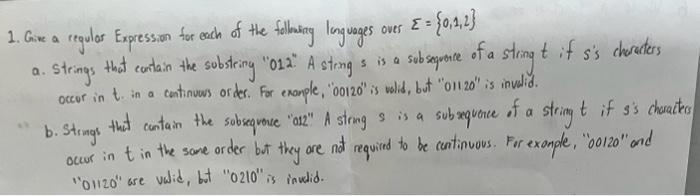 1. Give a regular Expression for each of the following languages over Σ = {0,1,2}
a. Strings that contain the substring "012" A string s is a subsequence of a string t if s's characters
occur in t in a continuous order. For example, "00120" is valid, but "01120" is invalid.
b. Strings that contain the subsequence "012" A string s is a subsequence of a string t if s's characters
occur in t in the same order but they are not required to be continuous. For example, "00120" and
"01120" are valid, but "0210" is invalid.